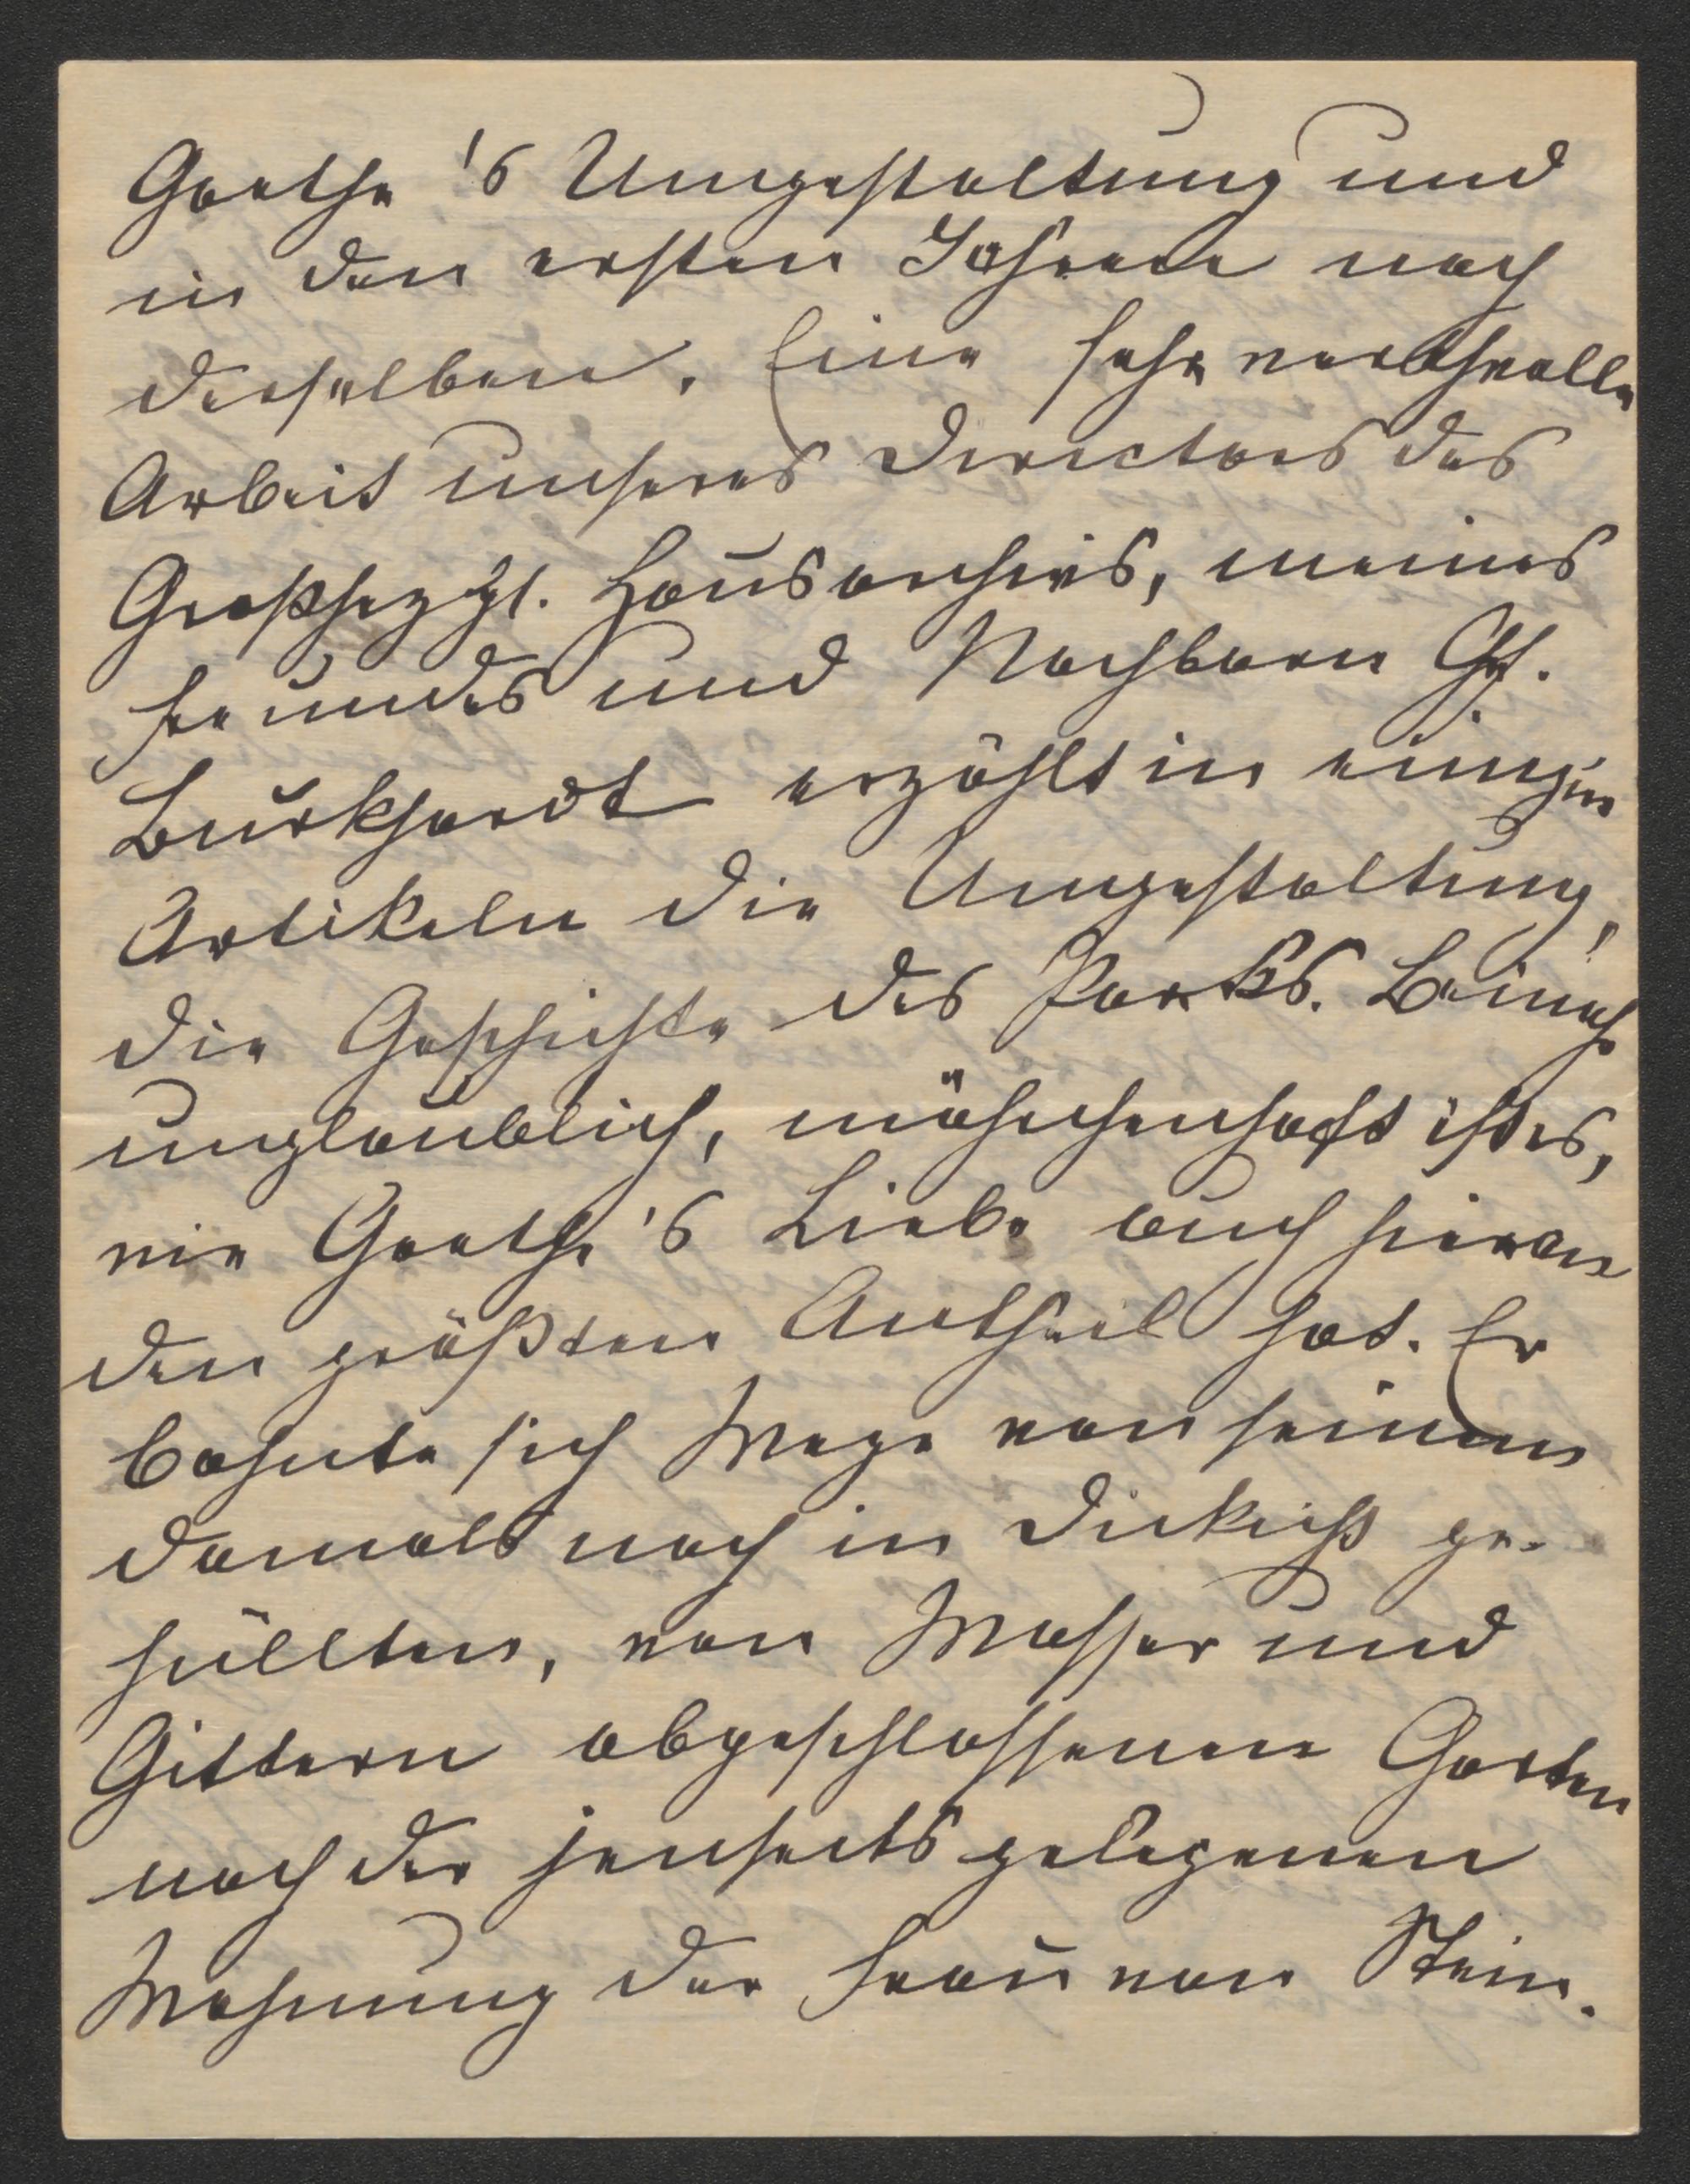 Goethe's Umgestaltung und
in den ersten Jahren nach
derselben. Eine sehr werthvolle
Arbeit unseres Directors des
Großhzzgl. Hausarchivs, meines
Freundes und Nachbarn
Burkhardt erzählt in einigen
Artikeln die Umgestaltung,
die Geschichte des Parks. Beinah
unglaublich, mährchenhaft ist es,
wie Goethe's Liebe auch hieran
den größten Antheil hat. Er
bahnte sich Wege von seinem
damals noch in Dickicht ge-
hüllten, von Wasser und
Gittern abgeschlossenen Garten
nach der jenseits gelegenen
Wohnung der Frau von Stein.